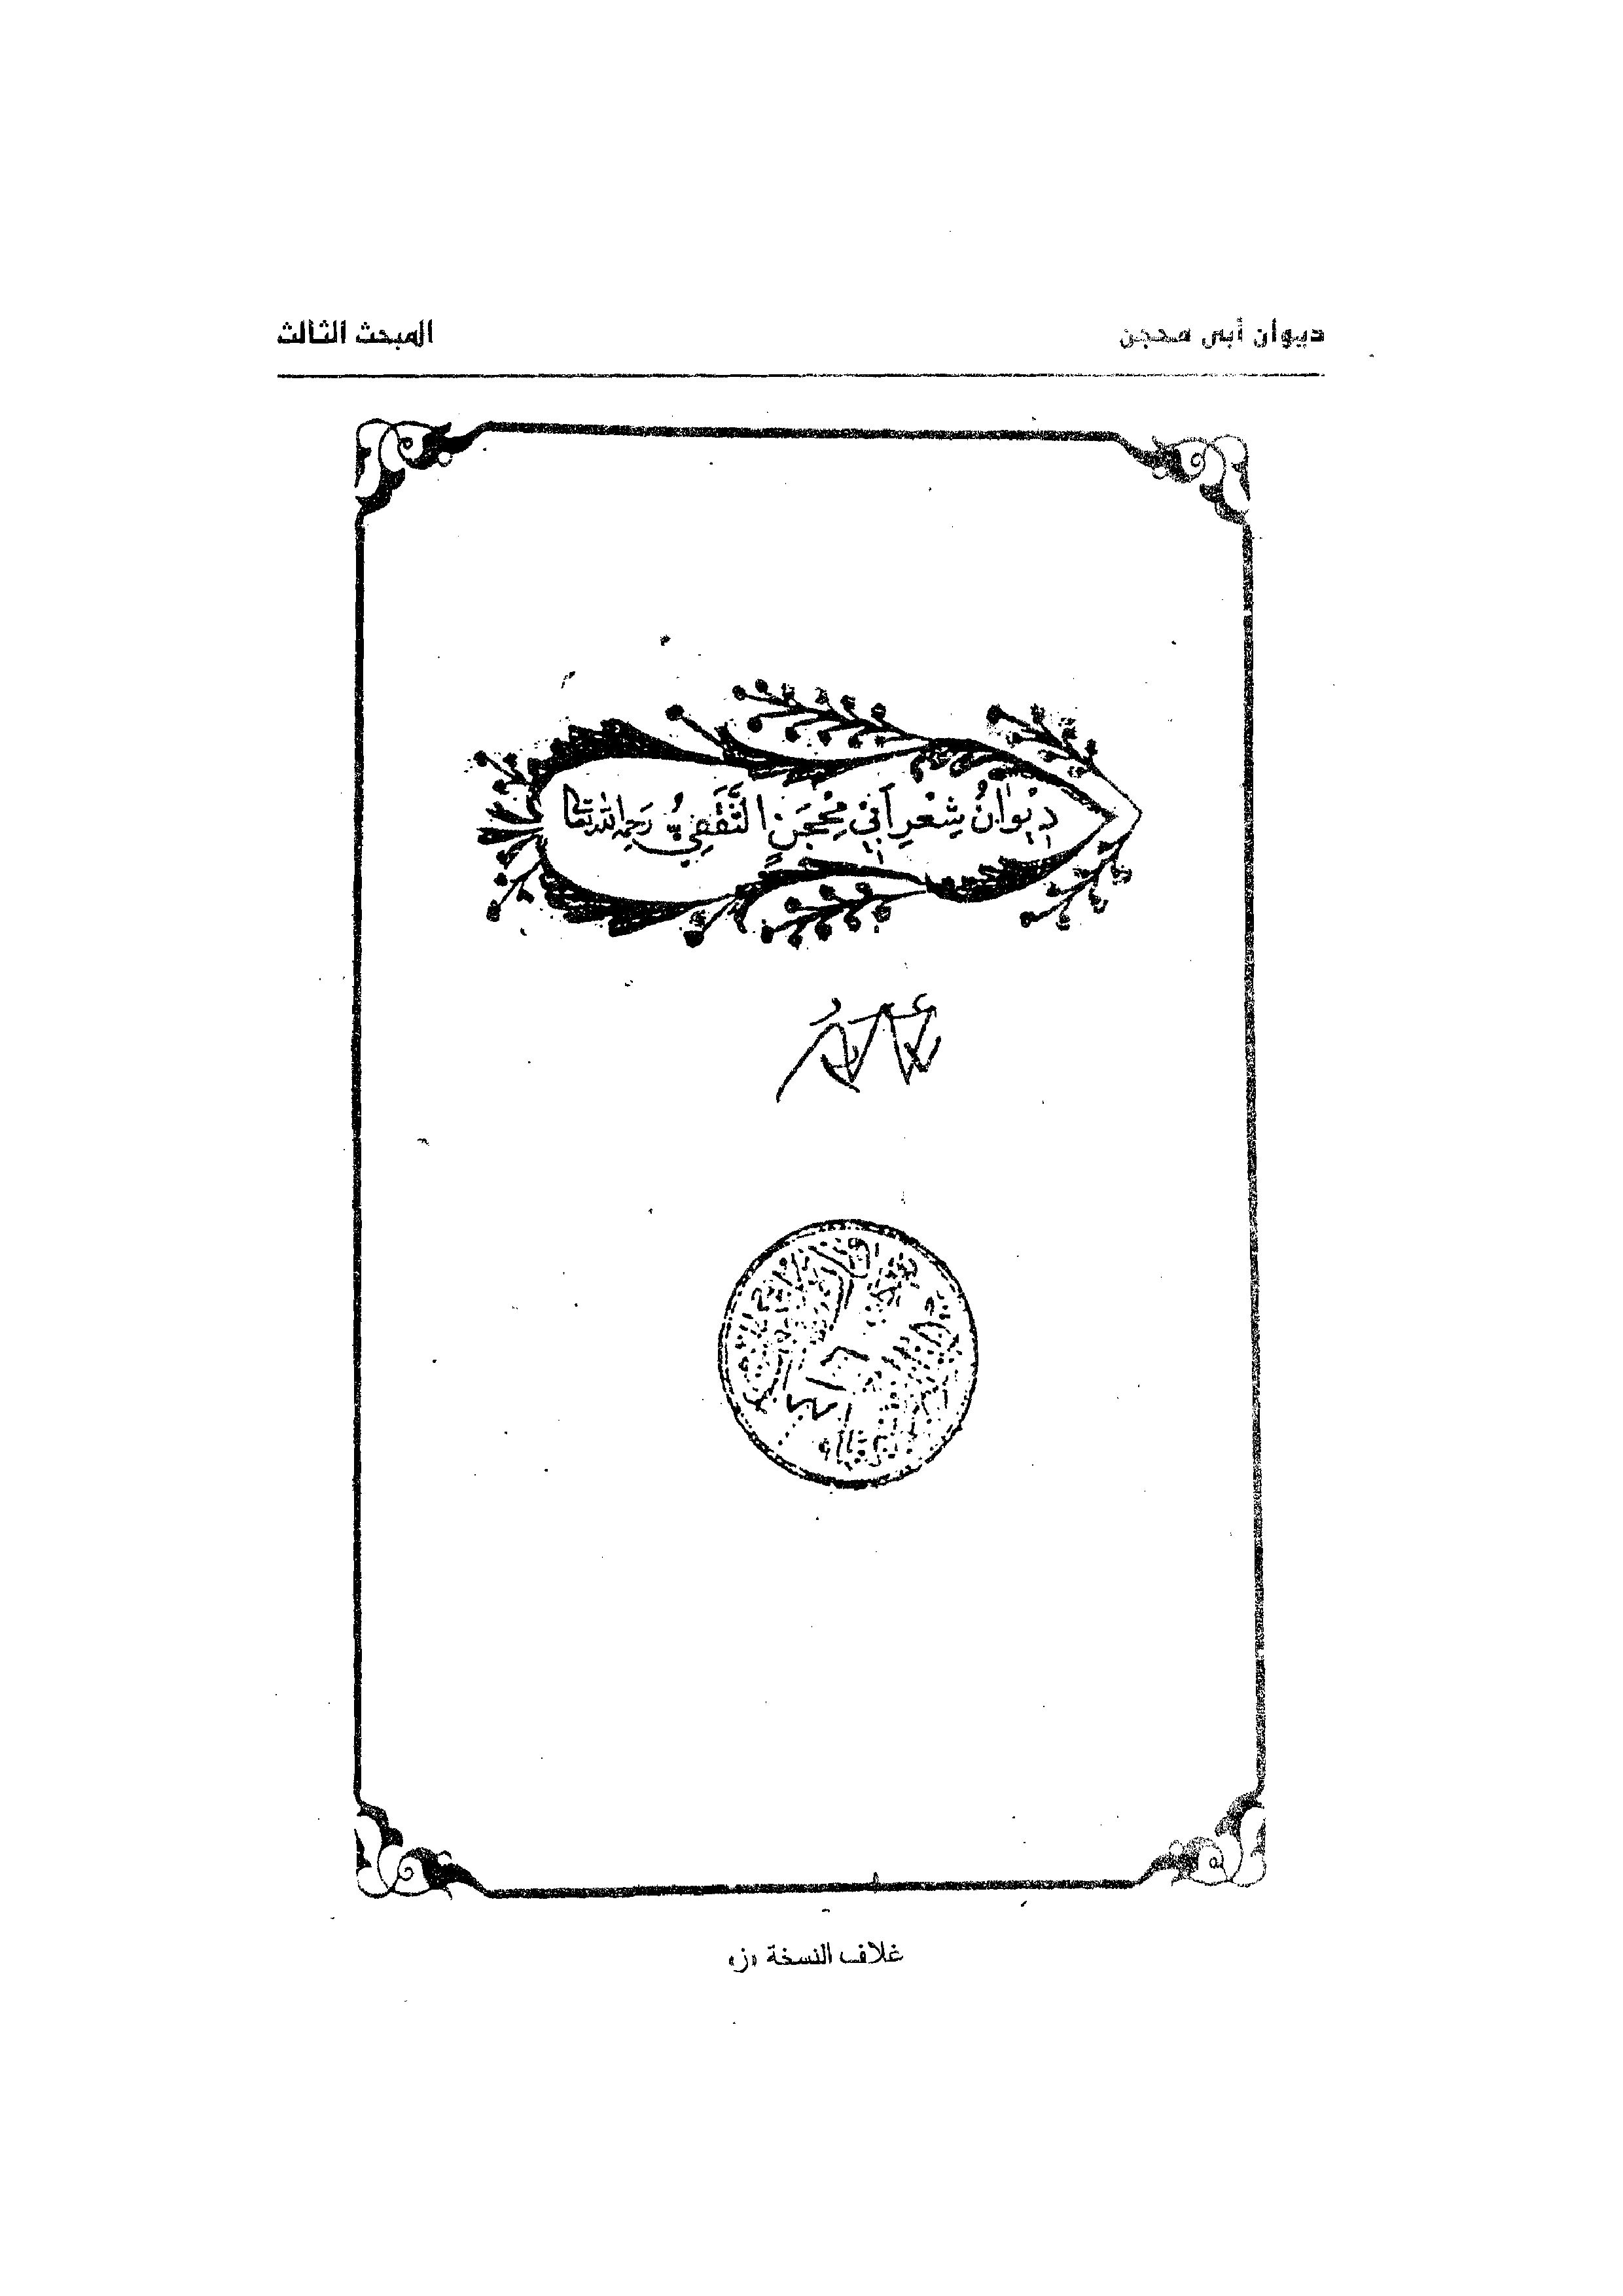 ديوان أبى محجن
المبحث الثالث
دِيْوَانُ شِعْرِ أَبِيْ مِحْجَنٍ الثَّقَفِيِّ رَحِمَهُ اللهُ تَعَالَى
غلاف النسخة «ز»